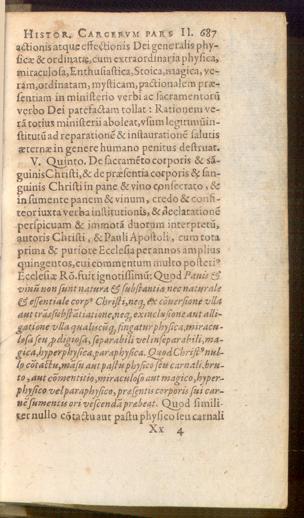 HISTOR. CARCERVM PARS II. 687
actionis atque effectionis Dei generalis phy-
sicæ & ordinatæ, cum extraordinaria physica,
miraculosa, Enthusiastica, Stoica, magica, ve-
ram, ordinatam, mysticam, pactionalem præ-
sentiam in ministerio verbi ac sacramentorũ
verbo Dei patefactam tollat: Rationem ve-
rã totius ministerii aboleat, vsum legitimũ in-
stitutũ ad reparationẽ & instaurationẽ salutis
æternæ in genere humano penitus destruat.
V. Quinto. De sacramẽto corporis & sã-
guinis Christi, & de præsentia corporis & san-
guinis Christi in pane & vino consecrato, &
in sumente panem & vinum, credo & confi-
teor iuxta verba institutionis, & declarationẽ
perspicuam & immotã duorum interpretũ,
autoris Christi, & Pauli Apostoli, cum tota
prima & puriore Ecclesia per annos amplius
quingentos, cui commentum multo posteriꝰ
Ecclesiæ Rõ. fuit ignotissimũ: Quod Panis &
vinũ non sunt natura & substantia nec naturale
& essentiale corpꝰ Christi, neq, ex cõuersione vlla
aut trãssubstãtiatione, neq, ex inclusione aut alli-
gatione vlla qualicũq, fingatur physica, miracu-
losa seu ꝓdigiosa, separabili vel inseparabili, ma-
gica, hyperphysica, paraphysica. Quod Christꝰ nul-
lo cõtactu, mãsu aut pastu physico seu carnali, bru-
to, aut cõmentitio, miraculoso aut magico, hyper-
physico vel paraphysico, præsentis corporis sui car-
nẽ sumentis ori vescendã præbeat. Quod simili-
ter nullo cõtactu aut pastu physico seu carnali
Xx 4